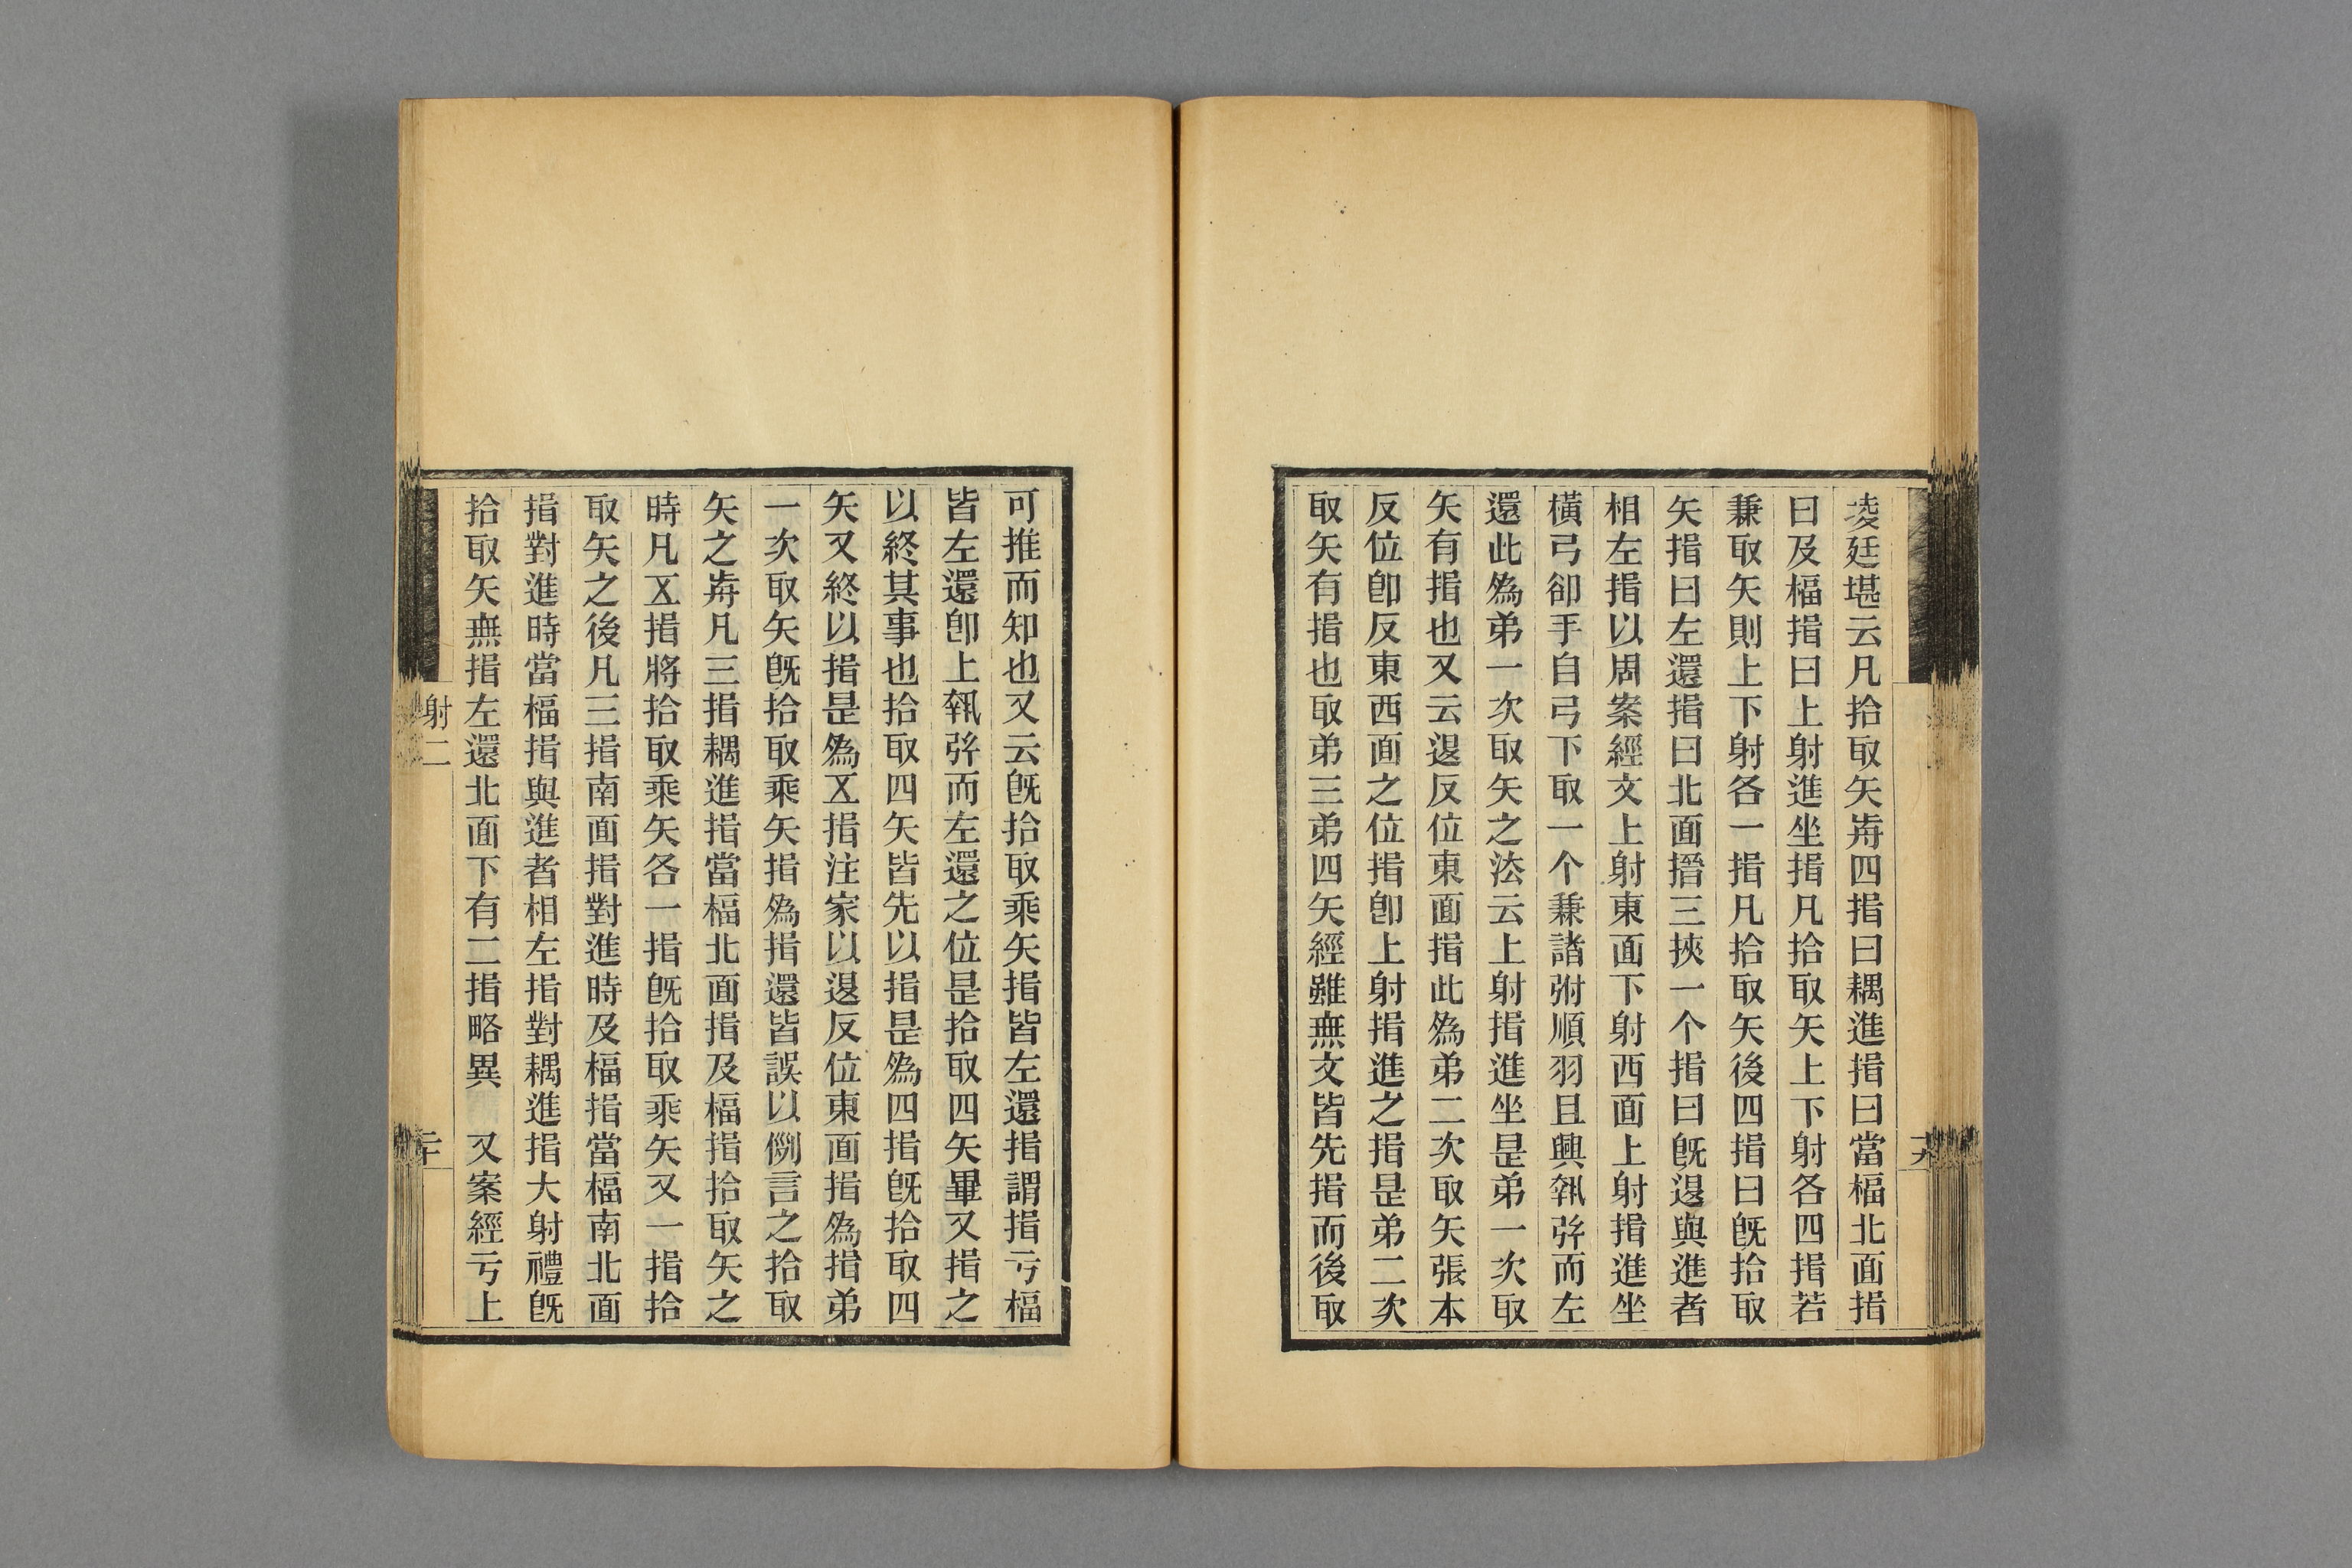 淩廷堪云凡拾取矢歬四揖曰耦進揖曰當楅北面揖
曰及楅揖曰上射進坐揖凡拾取矢上下射各四揖若
兼取矢則上下射各一揖凡拾取矢後四揖曰旣拾取
矢揖曰左還揖曰北面搢三挾一个揖曰旣退與進者
相左揖以周案經文上射東面下射西面上射揖進坐
橫弓卻手自弓下取一个兼諸弣順羽且興執弦而左
還此爲弟一次取矢之法云上射揖進坐是弟一次取
矢有揖也又云退反位東面揖此爲弟二次取矢張本
反位卽反東西面之位揖卽上射揖進之揖是弟二次
取矢有揖也取弟三弟四矢經雖無文皆先揖而後取
可推而知也又云旣拾取乘矢揖皆左還揖謂揖亏楅
皆左還卽上執弦而左還之位是拾取四矢畢又揖之
以終其事也拾取四矢皆先以揖是爲四揖旣拾取四
矢又終以揖是爲㐅揖注家以退反位東面揖爲揖弟
一次取矢旣拾取乘矢揖爲揖還皆誤以例言之拾取
矢之歬凡三揖耦進揖當楅北面揖及楅揖拾取矢之
時凡㐅揖將拾取乘矢各一揖旣拾取乘矢又一揖拾
取矢之後凡三揖南面揖對進時及楅揖當楅南北面
揖對進時當楅揖與進者相左揖對耦進揖大射禮旣
拾取矢無揖左還北面下有二揖略異　又案經亏上
射二